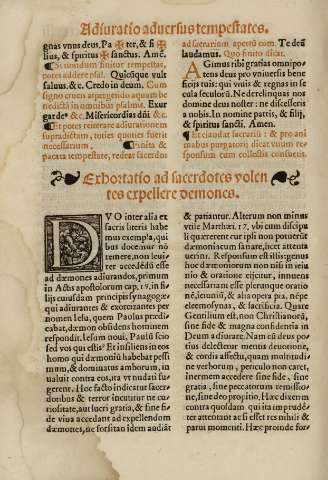 Adiuratio aduersus tempestates.
gnas vnus deus. Pa ✠ ter, & fi ✠
lius, & spiritus ✠ sanctus. Amē.
¶ Si nondum finitur tempestas,
potes addere psal. Quicūque vult
saluus. &c. Credo in deum. Cum
signo crucis aspergendo aquam be
nedictā in omnibus psalmis. Exur
gat de⁹ &c. Misereordias dñi &c.
¶ Et potes reiterare adiurationem
supradictam, toties quoties fuerit
necessarium, ¶ Finita &
pacata tempestate, redeat sacerdos
ad sacrarium apertū com. Te deū
laudamus. Quo finito dicat.
AGimus tibi gratias omnipo-
tens deus pro vniuersis bene
ficijs tuis: qui viuis & regnas in se
cula seculorū. Ne derelinquas nos
domine deus noster: ne discesseris
a nobis. In nomine patris, & filij,
& spiritus sancti. Amen.
¶ Et claudat sacrariū: & pro ani
mabus purgatorij dicat vnum re-
sponsum cum collectis consuetis.
Exhortatio ad sacerdotes volen
tes expellere demones.
DVO inter alia ex
sacris literis habe
mus exempla, qui
bus docemur nō
temere, non leui-
ter accedēdū esse
ad dæmones adiurandos, primum
in Actis apostolorum cap. 19. in fi
lijs cuiusdam principis synagogæ:
qui adiurantes & exorcizantes per
nomen Iesu, quem Paulus prædi-
cabat, dæmon obsidens hominem
respondit. Iesum noui, Paulū scio
sed vos qui estis? Et insiliens in eos
homo qui dæmoniū habebat pessi
mum, & dominatus amborum, in
ualuit contra eos, ita vt nudati fu-
gerent. Hoc facto indicatur sacer-
dotibus & terror incutitur ne cu-
riositate, aut lucri gratia, & sine fi-
de viua accedant ad expellendom
dæmones, ne forsitan idem audiāt
& patiantur. Alterum non minus
vtile Matthæi. 17. vbi cum discipu
li quærerent cur ipsi non potuerūt
dæmoniacum sanare, licet attenta
uerint. Responsum est illis: genus
hoc dæmoniorum non nisi in ieiu
nio & oratione eijcitur, innuens
necessariam esse plerunque oratio
nē, ieiuniū, & alia opera pia, nēpe
eleemosynas, & sacrificia. Quare
Gentilium est, non Christianorū,
sine fide & magna confidentia in
Deum adiurare. Nam eū deus po-
tius delectetur mentis deuotione,
& cordis affectu, quam multitudi-
ne verborum, periculo non caret,
inermem accedere sine fide, sine
gratia, sine peccatorum remissio-
ne, sine deo propitio. Hæc dixi em
contra quosdam qui ita imprudē-
ter attentant ac si esset res nulla aut
parui momenti. Hæc proinde for-